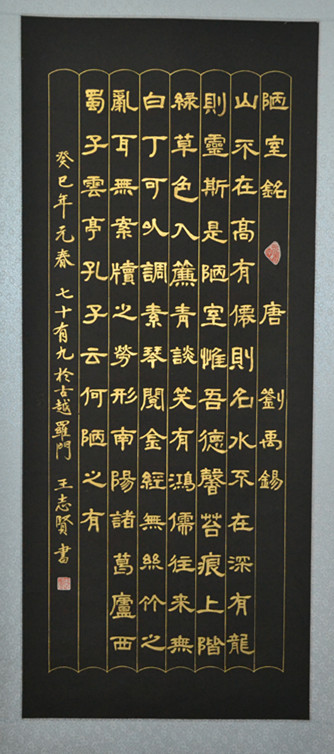 陋室銘 唐 劉禹錫
山不在髙有僊則名水不在深有龍
則靈斯是陋室惟吾德馨苔痕上階
綠草色入簾青談笑有鴻儒往來無
白丁可以調素琴閱金經無絲竹之
亂耳無案牘之勞形南陽諸葛廬西
蜀子雲亭孔子云何陋之有
癸巳年元春 七十有九於古越羅門 王志賢書